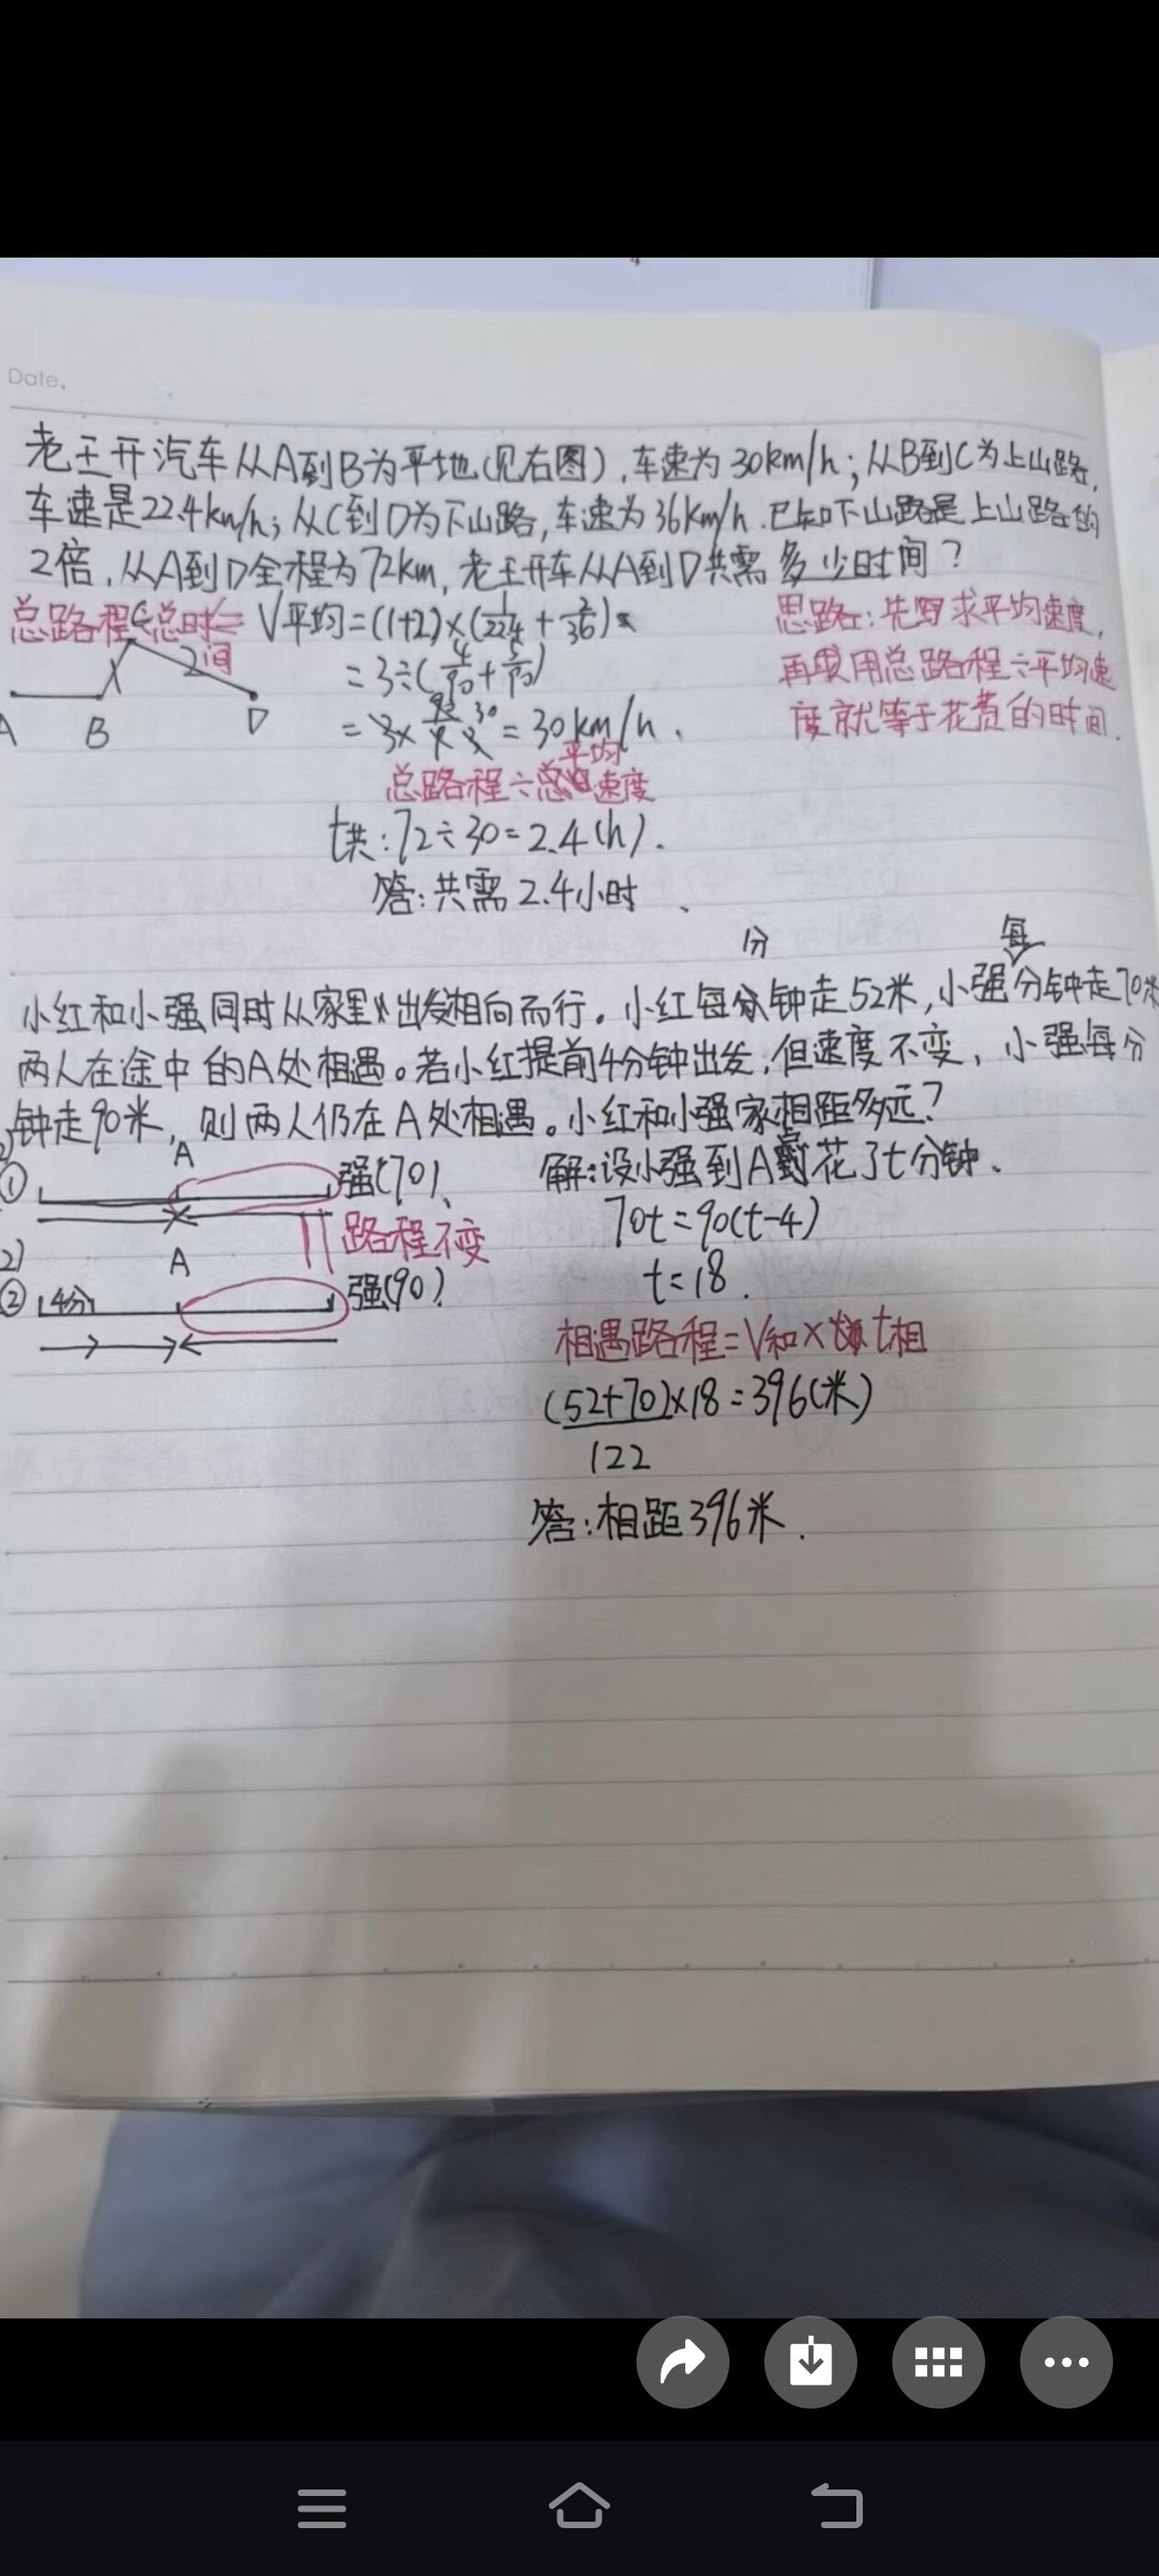 Date.
老王开汽车从A到B为平地(见右图),车速为30km/h;从B到C为上山路,
车速是22.4km/h;从C到D为下山路,车速为36km/h.已知下山路是上山路的
2倍,从A到D全程为72km,老王开车从A到D共需多少时间?
总路程÷总时间= V平均=(1+2)×(1/22.4+2/36)
=3÷(4/90+5/90)
=3× = 30km/h.
A B C D
1 2
思路:先 求平均速度,
再 用总路程÷平均速
度就等于花费的时间.
总路程÷ 平均速度
t共:72÷30=2.4(h).
答:共需2.4小时.
小红和小强同时从家里出发相向而行。小红每分钟走52米,小强每分钟走70米
两人在途中的A处相遇。若小红提前4分钟出发,但速度不变,小强每分
钟走90米,则两人仍在A处相遇。小红和小强家相距多远?
① A 强(70)
路程不变
② 4分 A 强(90)
解:设小强到A 花了t分钟.
70t=90(t-4)
t=18.
相遇路程=V和× t相
(52+70)×18=396(米)
122
答:相距396米.